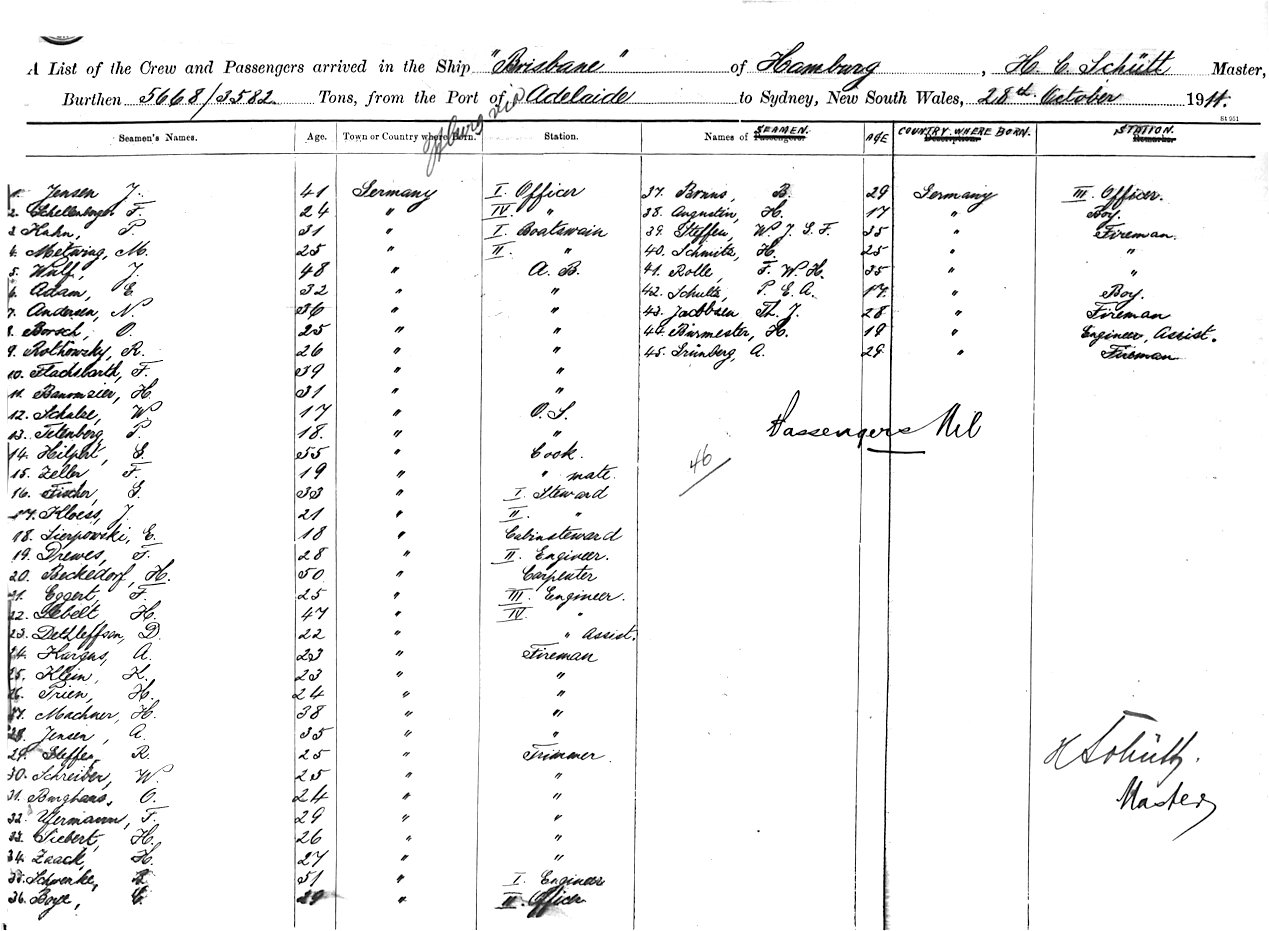 A List of the Crew and Passengers arrived in the Ship "Brisbane" of Hamburg, H. C. Schütt Master,
Burthen 5668/3582. Tons, from the Port of Hburg via Adelaide to Sydney, New South Wales, 28th October 1911.
St 951
Seamen's Names. Age. Town or Country where Born. Station.
1. Jensen J. 41 Germany I. Officer
2. Schellenberger F. 24 " IV. "
3 Hahn, P. 31 " I. Boatswain
4. Metwing, M. 25 " II. "
5. Wulf, J. 48 " A. B.
6. Adam, E. 32 " "
7. Andersen, N. 36 " "
8. Borsch, O. 25 " "
9. Rothowsky, R. 26 " "
10. Flachsbarth, F. 39 " "
11. Baumeier, H. 31 " "
12. Schulze, W. 17 " O. S.
13. Tetenberg, P. 18. " "
14. Hilpert, G. 55 " Cook.
15. Zeller F. 19 " " mate.
16. Fischer, G. 33 " I. Steward
17. Kloess, J. 21 " II. "
18. Sierpowski, E. 18 " Cabinsteward
19. Drewes, F. 28 " II. Engineer.
20. Beckedorf, H. 50 " Carpenter
21. Eggert, F. 25 " III. Engineer.
22. H. 47 " IV. "
23. Dethleffsen, D. 22 " " Assist.
24. Kargus, A. 23 " Fireman
25. Klein, K. 23 " "
26. Trien, H. 24 " "
27. Machner, H. 38 " "
28. Jensen, A. 35 " "
29. Steffen, R. 25 " Trimmer.
30. Schreiber, W. 25 " "
31. Burghans, O. 24 " "
32. F. 29 " "
33. Siebert, H. 26 " "
34. Zaack, H. 27 " "
35. Schwenke, B. 51 " I. Engineer
36. Boye, E. 29 " II. Officer
Names of Passengers SEAMEN. AGE Description COUNTRY WHERE BORN. Remarks STATION.
37. Bruns, B. 29 Germany III. Officer.
38. Augustin, H. 17 " Boy.
39. Steffen, W. J. G. F. 35 " Fireman.
40. Schmitz, H. 25 " "
41. Rolle, F. W. H. 35 " "
42. Schultz, P. E. A. 17. " Boy.
43. Jacobsen Th. J. 28 " Fireman
44. Burmester, H. 19 " Engineer, Assist.
45. Grünberg, A. 29. " Fireman
Passengers Nil
46
H Schütt.
Master